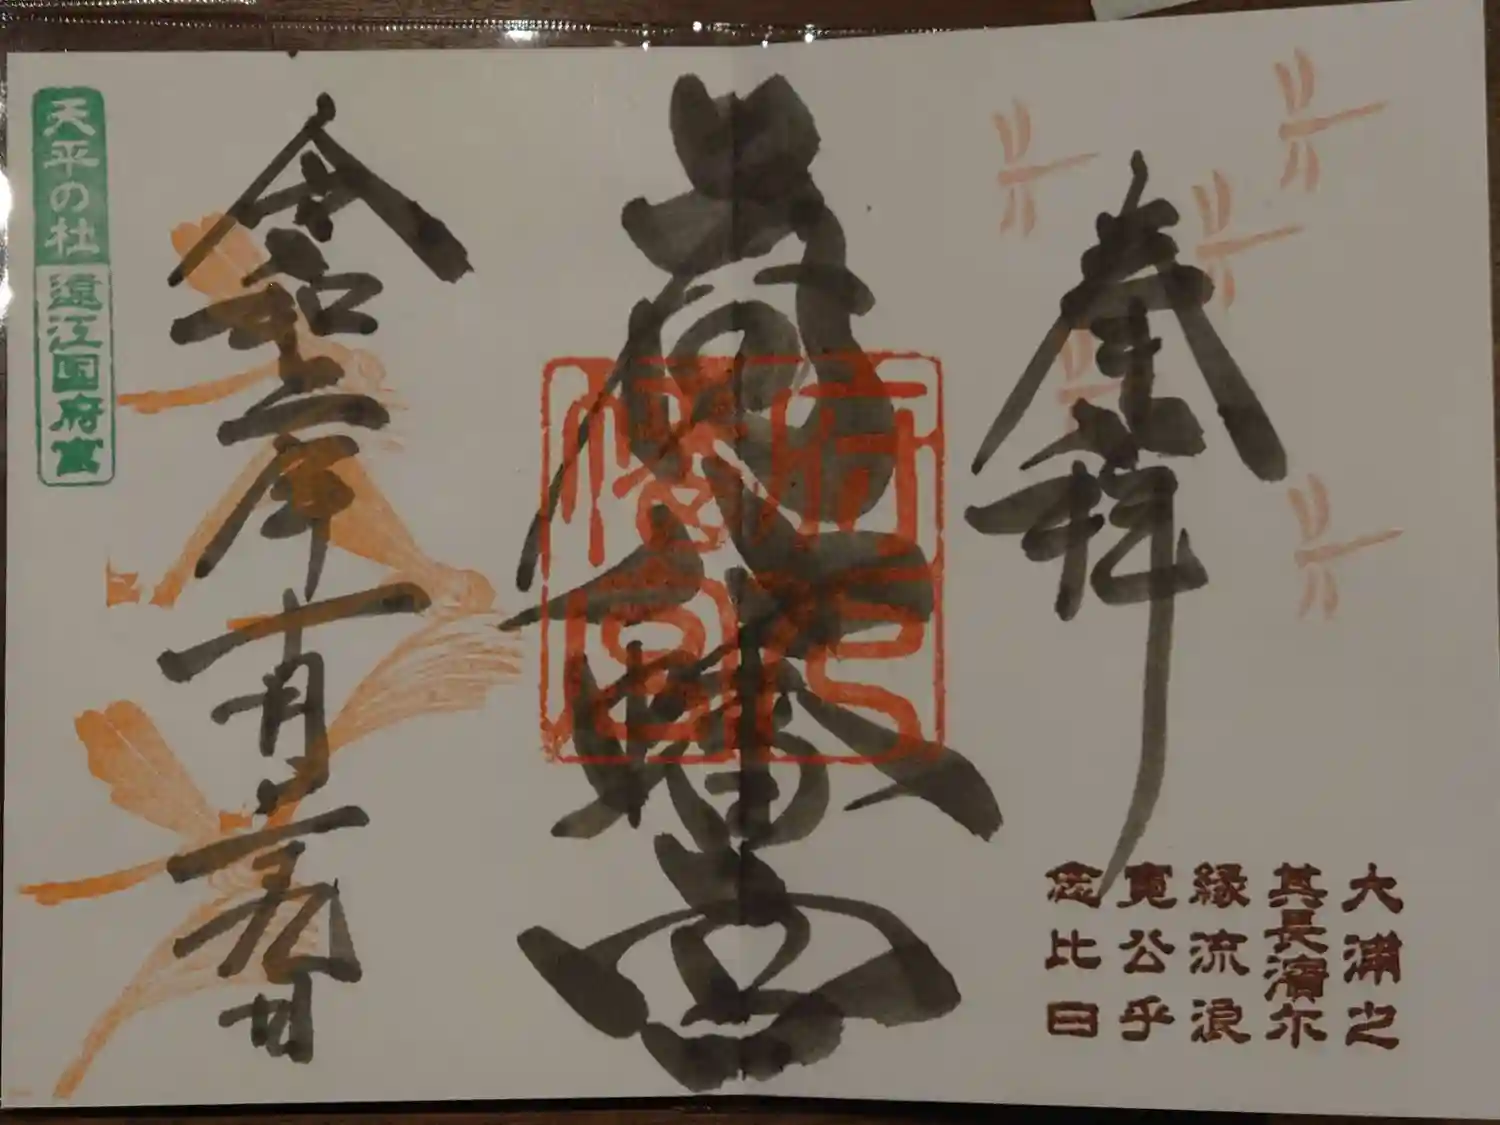 奉拝
大浦之
其長濱尓
縁流浪
寛公乎
念比日
府八幡宮
府八
幡宮
令和二年
天平の杜 遠江国府宮